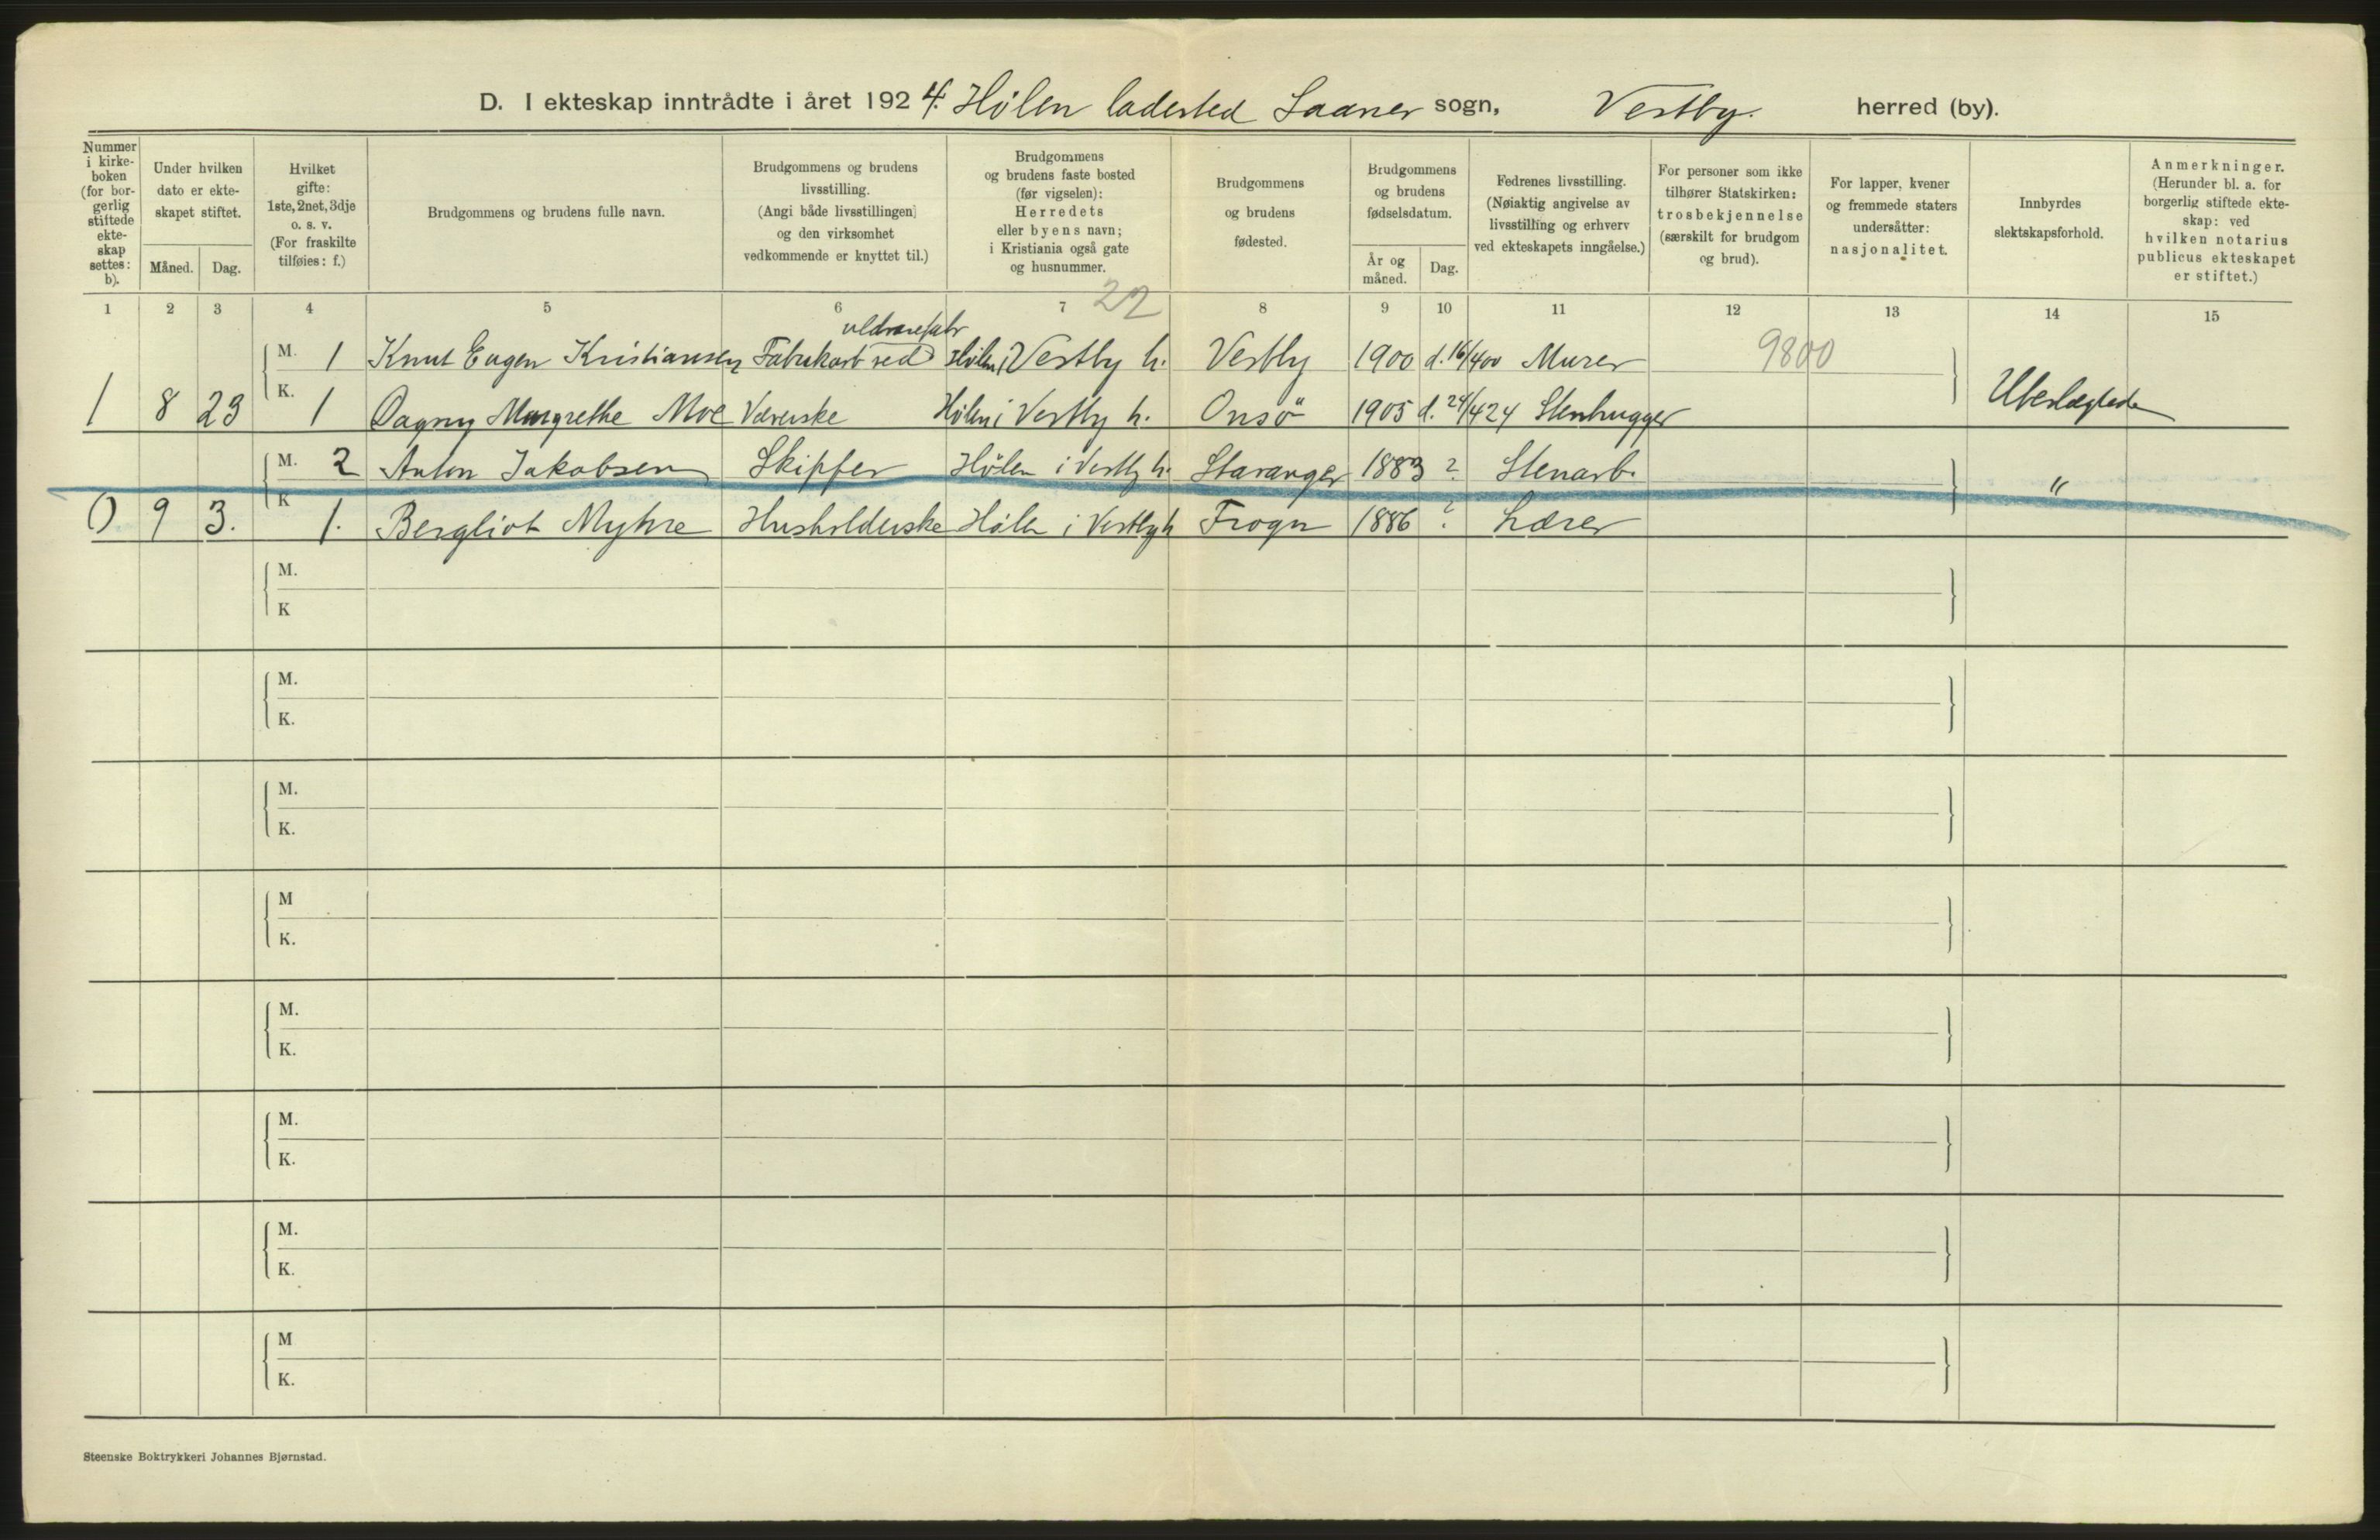 D. I ekteskap inntrådte i året 1924. Hølen ladested Saaner sogn, Vestby. herred (by).
Nummer i kirke- boken (for bor- gerlig stiftede ekte- skap settes: b).
Under hvilken dato er ekte- skapet stiftet.
Måned. Dag.
Hvilket gifte: 1ste, 2net, 3dje o. s. v. (For fraskilte tilføies: f.)
Brudgommens og brudens fulle navn.
Brudgommens og brudens livsstilling. (Angi både livsstillingen og den virksomhet vedkommende er knyttet til.)
Brudgommens og brudens faste bosted (før vigselen): Herredets eller byens navn; i Kristiania også gate og husnummer.
Brudgommens og brudens fødested.
Brudgommens og brudens fødselsdatum.
År og måned. Dag.
Fedrenes livsstilling. (Nøiaktig angivelse av livsstilling og erhverv ved ekteskapets inngåelse.)
For personer som ikke tilhører Statskirken: trosbekjennelse (særskilt for brudgom og brud).
For lapper, kvener og fremmede staters undersåtter: nasjonalitet.
Innbyrdes slektskapsforhold.
Anmerkninger. (Herunder bl. a. for borgerlig stiftede ekte- skap: ved hvilken notarius publicus ekteskapet er stiftet.)
1 2 3 4 5 6 7 22 8 9 10 11 12 13 14 15
uldvarefabr
M. 1 Knut Eugen Kristiansen Fabrikarb ved Hølen i Vestby h. Vestby 1900 d. 16/4 00 Murer 9800
1 8 23 K. 1 Dagny Margrethe Moe Væverske Hølen i Vestby h. Onsö 1905 d. 24/4 24 Stenhugger Ubeslægtede
M. 2 Anton Jakobsen Skipper Hølen i Vestby h. Stavanger 1883 ? Stenarb. "
() 9 3. K 1. Bergliot Myhre Husholderske Hølen i Vestby h Frogn 1886 ? Lærer
M.
K
M.
K.
M.
K.
M
K.
M.
K.
M.
K.
M.
K.
M
K.
Steenske Boktrykkeri Johannes Bjørnstad.